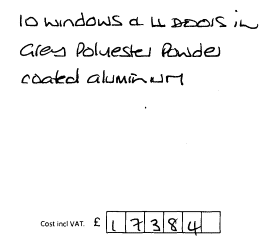 10 windows & 4 Doors in
Grey Polyester Powder
coated aluminium
Cost incl VAT. £ 17384